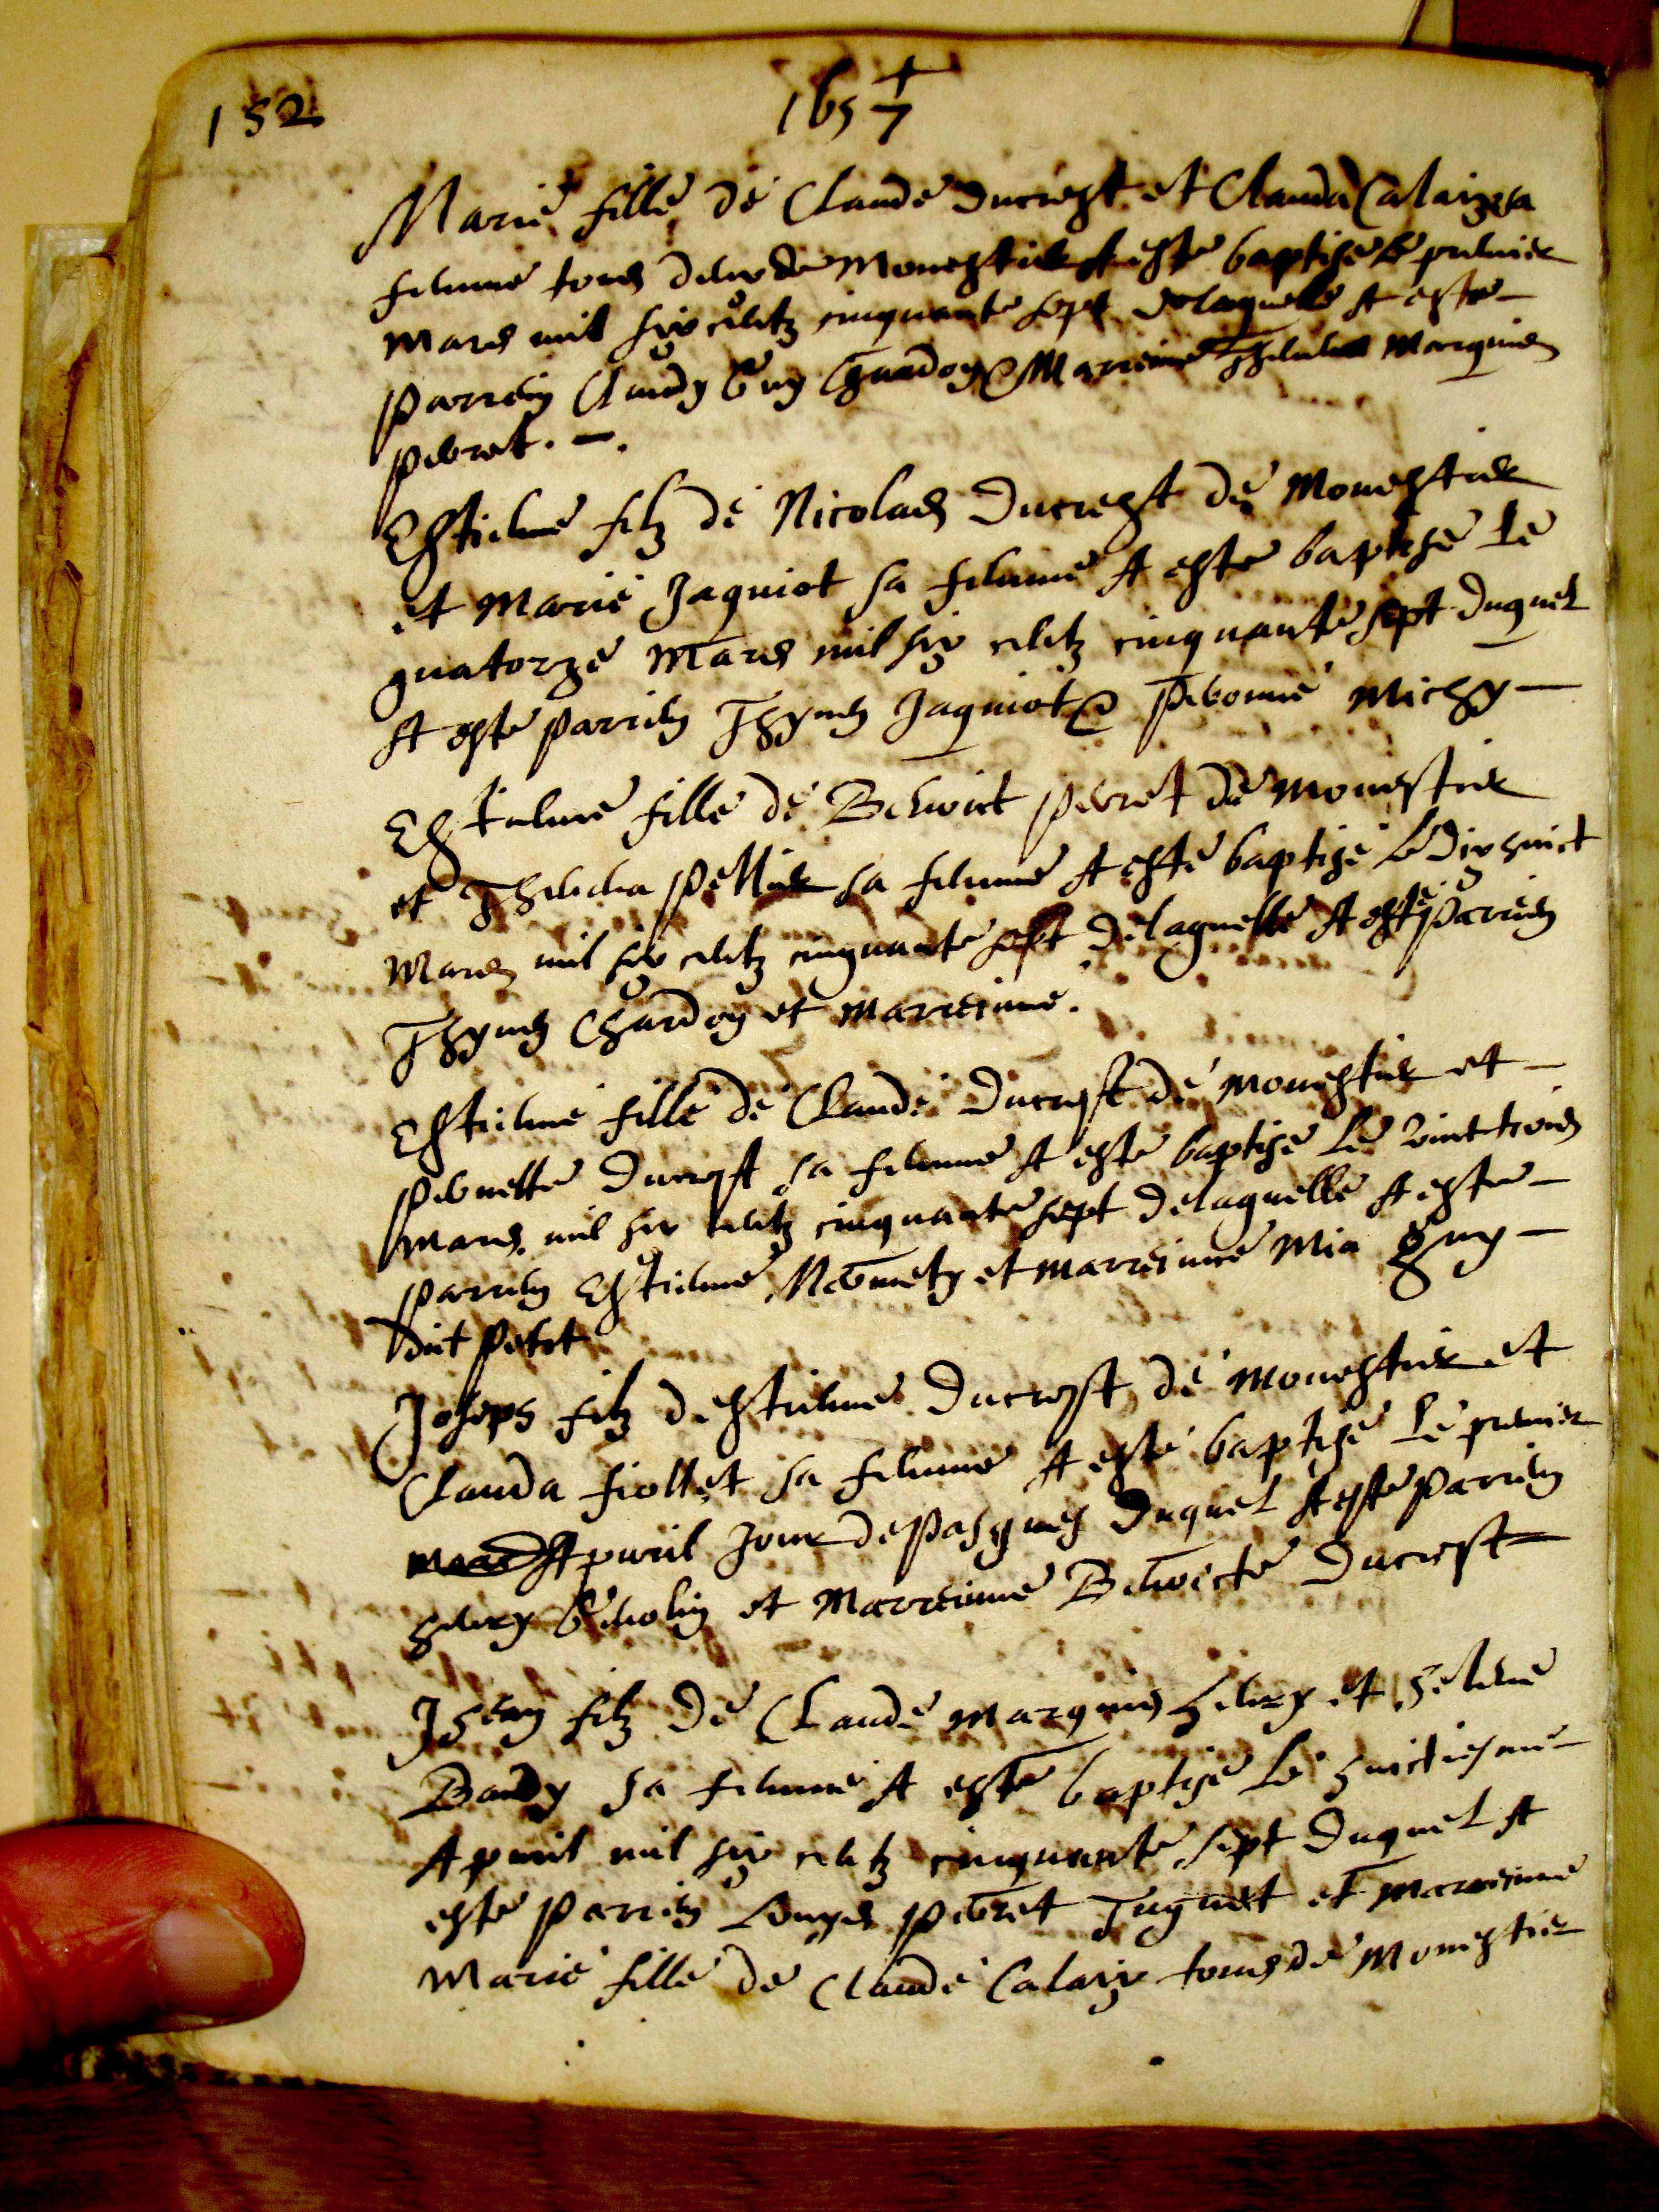 152
1657
Marie fille de Claude Ducrest et Clauda Calaiz sa
femme tous deux de Monestier A este baptise le premier
Mars mil six centz cinquante sept de laquelle A este
Parrein Claudy Guy Chardon et Marreine Marquis
Pevret
Estienne filz de Nicolas Ducrest de Monestier
et Marie Jaquiot sa femme A este baptise Le
quatorze Mars mil six centz cinquante sept duquel
A este Parrein Thyven Jaquiot et Michy
Estienne fille de Benoict Pevret de Monestier
et Pellier sa femme A este baptise Le Dix huict
Mars mil six centz cinquante sept De laquelle A este Parrein
Thyven Chardon et Marreinne.
Estienne fille de Claude Ducrest de Monestier et
Pernette Ducrest sa femme A este baptise Le vint trois
Mars mil six centz cinquante sept De laquelle A este
Parrein Estienne et Marreinne Mia Guy
dit Petet
Joseph filz d'Estienne Ducrest de Monestier et
Clauda fiollet sa femme A este baptise Le premier
Apvril Jour de Pasques Duquel A este Parrein
Henry et Marreinne Benoicte Ducrest
Jehan filz de Claude Marquis Henry et Helene
Baudy sa femme A este baptise Le huictiesme
Apvril mil six centz cinquante sept Duquel A
este Parrein Louys Pevret et Marreinne
Marie fille de Claude Calaiz tous de Monestier